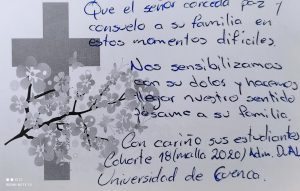 Que el señor conceda paz y
consuelo a su familia en
estos momentos dificiles.
Nos sensibilizamos
con su dolor y hacemos
llegar nuestro sentido
pésame a su Familia.
Con cariño sus estudiantes
Cohorte 18 (malla 2020) Adm.
Universidad de Cuenca.